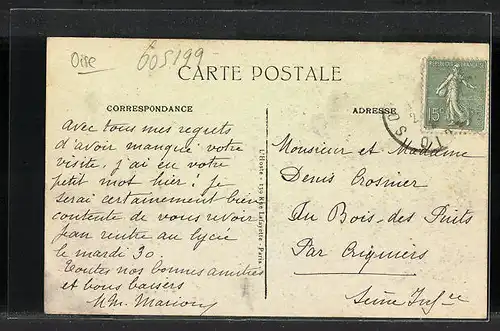 Oise
605199
CARTE POSTALE
CORRESPONDANCE
ADRESSE
avec tous mes regrets
d'avoir manqué votre
visite, j'ai eu votre
petit mot hier! Je
serai certainement bien
contente de vous revoir
Jean rentre au lycée
le mardi 30.
Toutes nos bonnes amitiés
et bons baisers
L'Hoste - 139 Rue Lafayette - Paris
15c
Monsieur et Madame
Denis Crosnier
Au Bois-des Puits
Par Criquiers
Seine Infre